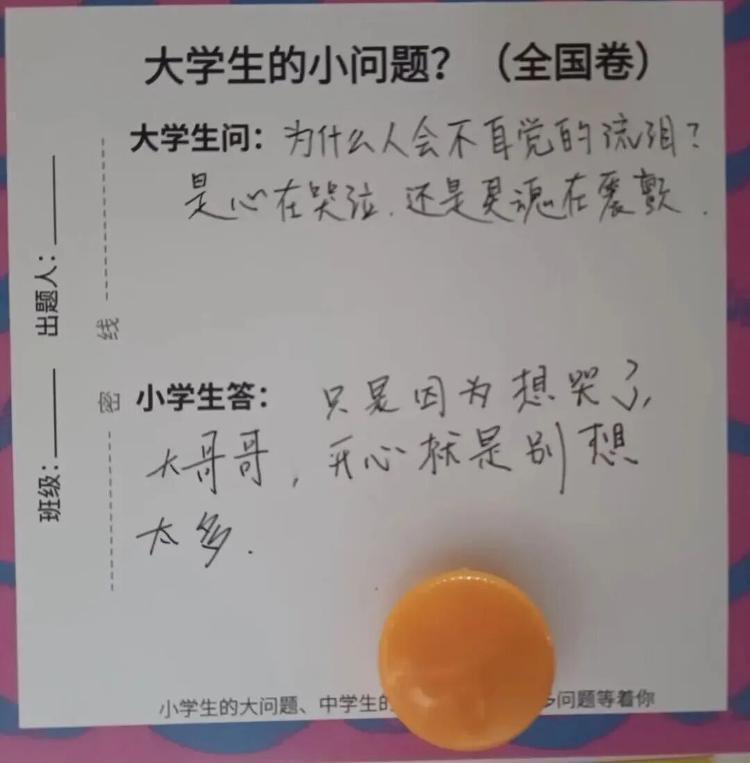 大学生的小问题？（全国卷）
大学生问：为什么人会不自觉的流泪？
是心在哭泣.还是灵魂在震颤.
出题人：
线
密
班级：
小学生答：只是因为想哭了,
大哥哥，开心就是别想
太多.
小学生的大问题、中学生的
多问题等着你